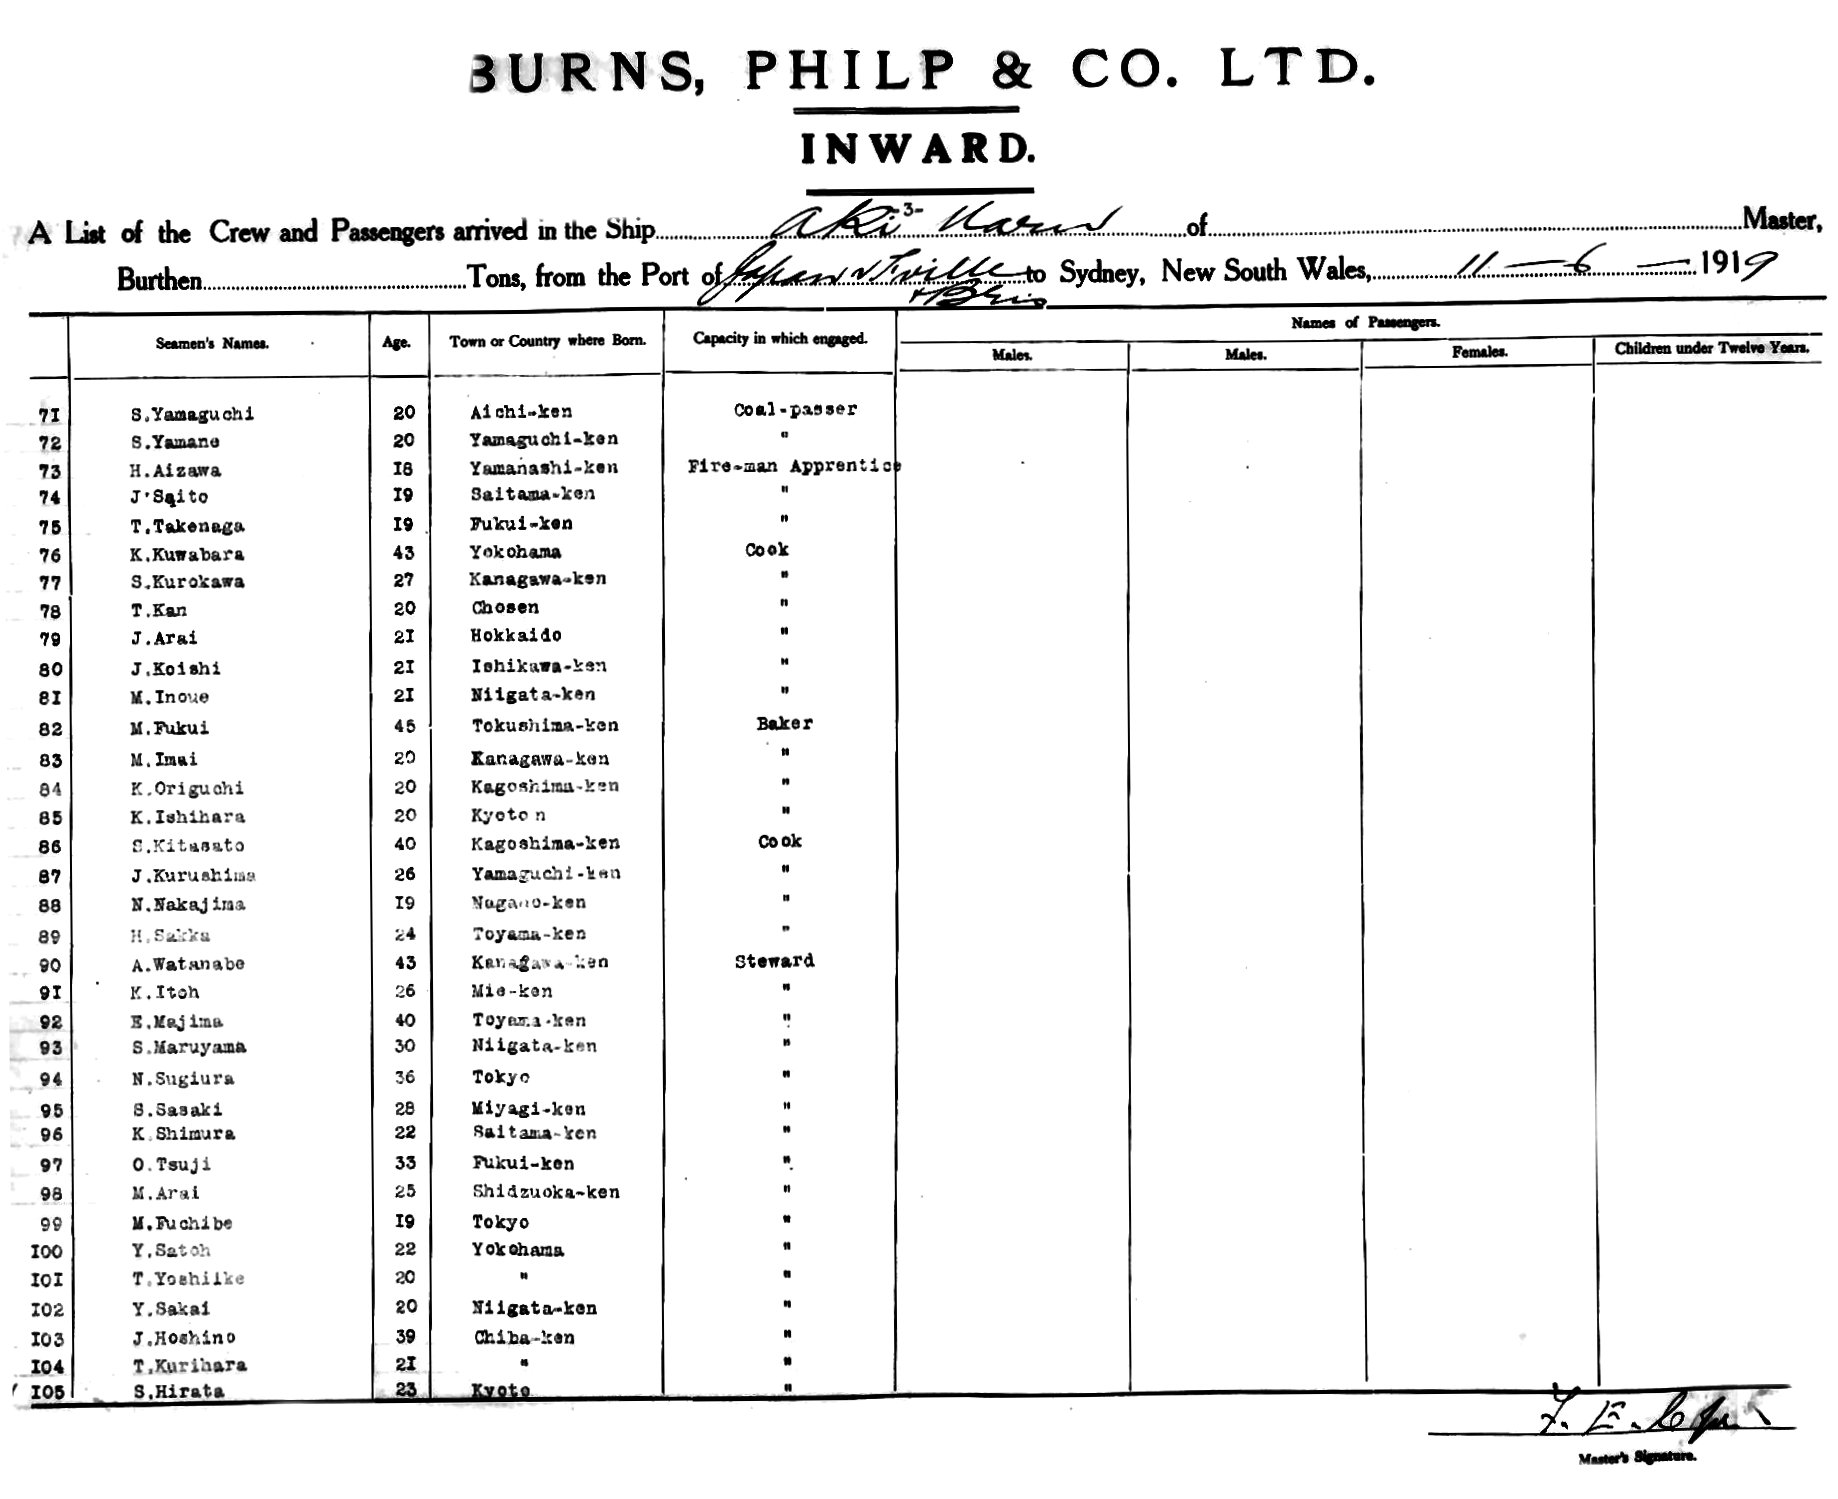 BURNS, PHILP & CO. LTD.
INWARD.
-3-
A List of the Crew and Passengers arrived in the Ship Aki Maru of Master,
Burthen Tons, from the Port of Japan & T'ville to Sydney, New South Wales, 11-6-1919
& Bris
Seamen's Names. Age. Town or Country where Born. Capacity in which engaged. Names of Passengers.
Males. Males. Females. Children under Twelve Years.
7I S.Yamaguchi 20 Aichi-ken Coal-passer
72 S.Yamane 20 Yamaguchi-ken "
73 H.Aizawa I8 Yamanashi-ken Fire-man Apprentice
74 J'Saito I9 Saitama-ken "
75 T.Takenaga I9 Fukui-ken "
76 K.Kuwabara 43 Yokohama Cook
77 S.Kurokawa 27 Kanagawa-ken "
78 T.Kan 20 Chosen "
79 J.Arai 2I Hokkaido "
80 J.Koishi 2I Ishikawa-ken "
8I M.Inoue 2I Niigata-ken "
82 M.Fukui 45 Tokushima-ken Baker
83 M.Imai 20 Kanagawa-ken "
84 K.Origuchi 20 Kagoshima-ken "
85 K.Ishihara 20 Kyoto n "
86 S.Kitasato 40 Kagoshima-ken Cook
87 J.Kurushima 26 Yamaguchi-ken "
88 N.Nakajima I9 Nagano-ken "
89 H.Sakka 24 Toyama-ken "
90 A.Watanabe 43 Kanagawa-ken Steward
9I K.Itoh 26 Mie-ken "
92 E.Majima 40 Toyama-ken "
93 S.Maruyama 30 Niigata-ken "
94 N.Sugiura 36 Tokyo "
95 S.Sasaki 28 Miyagi-ken "
96 K.Shimura 22 Saitama-ken "
97 O.Tsuji 33 Fukui-ken "
98 M.Arai 25 Shidzuoka-ken "
99 M.Fuchibe I9 Tokyo "
I00 Y.Satoh 22 Yokohama "
I0I T.Yoshiike 20 " "
I02 Y.Sakai 20 Niigata-ken "
I03 J.Hoshino 39 Chiba-ken "
I04 T.Kurihara 2I " "
I05 S.Hirata 23 Kyoto "
Master's Signature.